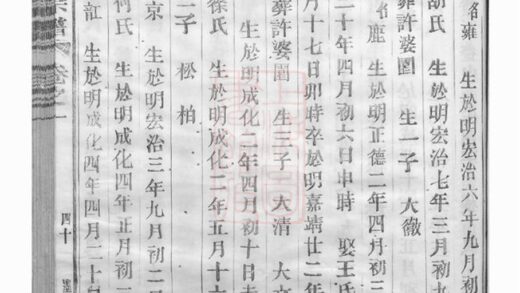 名雍　生於明宏治六年九月初
胡氏　生於明宏治七年三月初九
葬許婆園　生一子　大徹
名鹿　生於明正德二年四月初三
二十年四月初六日申時　娶王氏
葬許婆園　生三子　大清　大
月十七日卯時卒於明嘉靖廿二年
生於明成化二年四月初十日
徐氏　生於明成化二年五月十
二子　松　柏
京　生於明宏治三年九月初二
何氏　生於明成化四年正月初
訌　生於明成化四年四月二十
宗譜　卷之一
四十